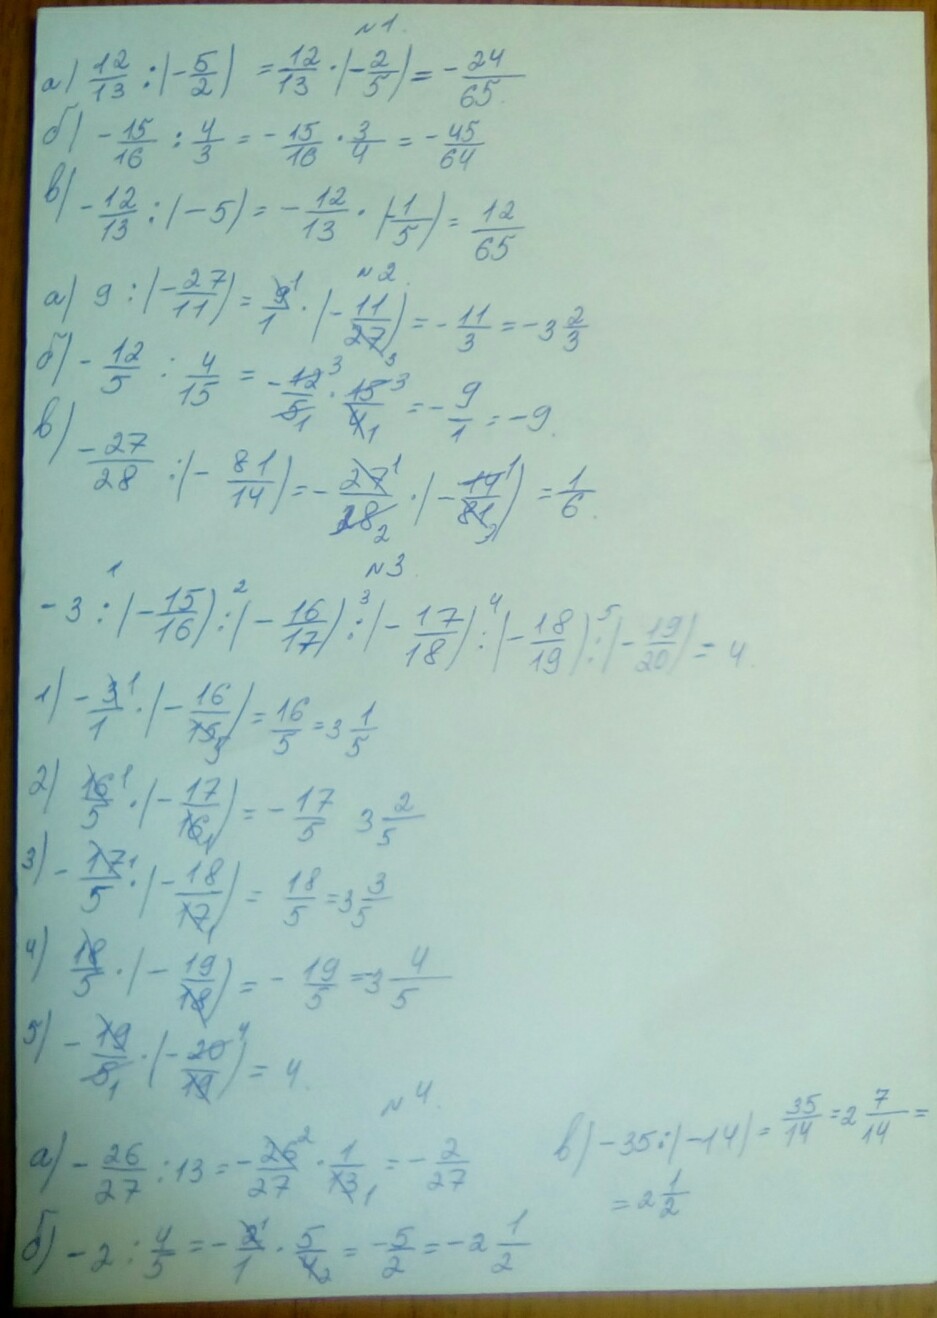 №1.
а) 12/13 : (-5/2) = 12/13 · (-2/5) = -24/65.
б) -15/16 : 4/3 = -15/16 · 3/4 = -45/64
в) -12/13 : (-5) = -12/13 · (-1/5) = 12/65
№2.
а) 9 : (-27/11) = 9 1/1 · (-11/27 3) = -11/3 = -3 2/3
б) -12/5 : 4/15 = -12 3/5 1 · 15 3/4 1 = -9/1 = -9.
в) -27/28 : (-81/14) = -27 1/28 2 · (-14 1/81 3) = 1/6.
№3.
-3 :¹ (-15/16) :² (-16/17) :³ (-17/18) :⁴ (-18/19) :⁵ (-19/20) = 4.
1) -3 1/1 · (-16/15 5) = 16/5 = 3 1/5
2) 16 1/5 · (-17/16 1) = -17/5 3 2/5
3) -17 1/5 · (-18/17 1) = 18/5 = 3 3/5
4) 18/5 · (-19/18) = -19/5 = -3 4/5
5) -19/5 1 · (-20 4/19) = 4.
№4.
а) -26/27 : 13 = -26 2/27 · 1/13 1 = -2/27
б) -2 : 4/5 = -2 1/1 · 5/4 2 = -5/2 = -2 1/2
в) -35 : (-14) = 35/14 = 2 7/14 =
= 2 1/2